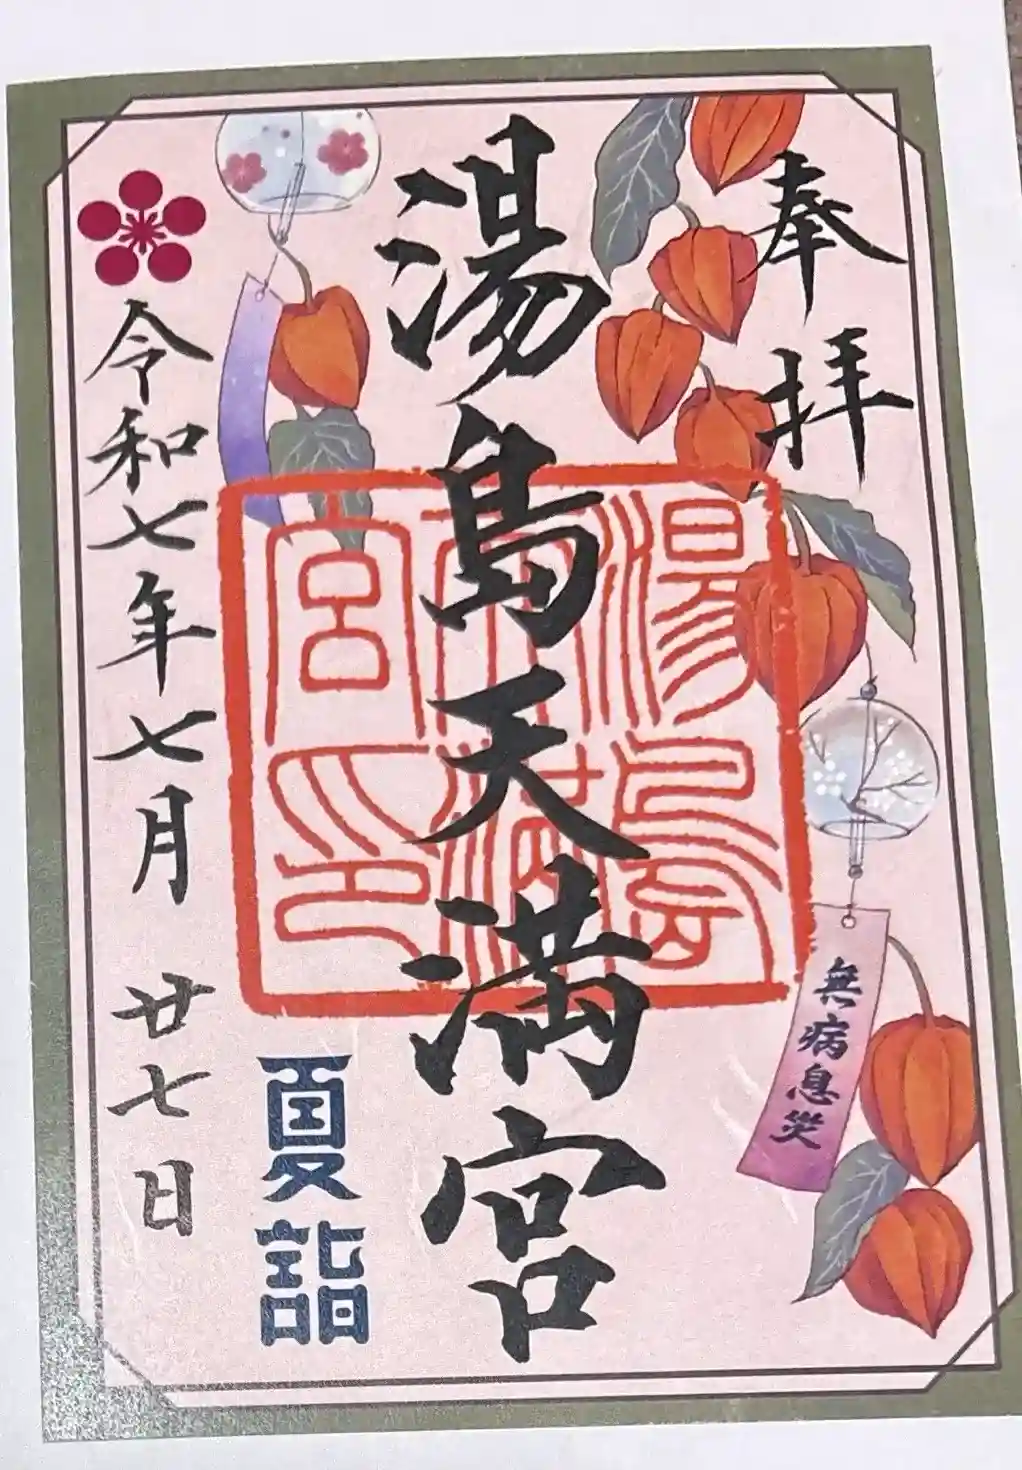 奉拝
湯島天満宮
湯島天満宮印
無病息災
夏詣
令和七年七月廿七日